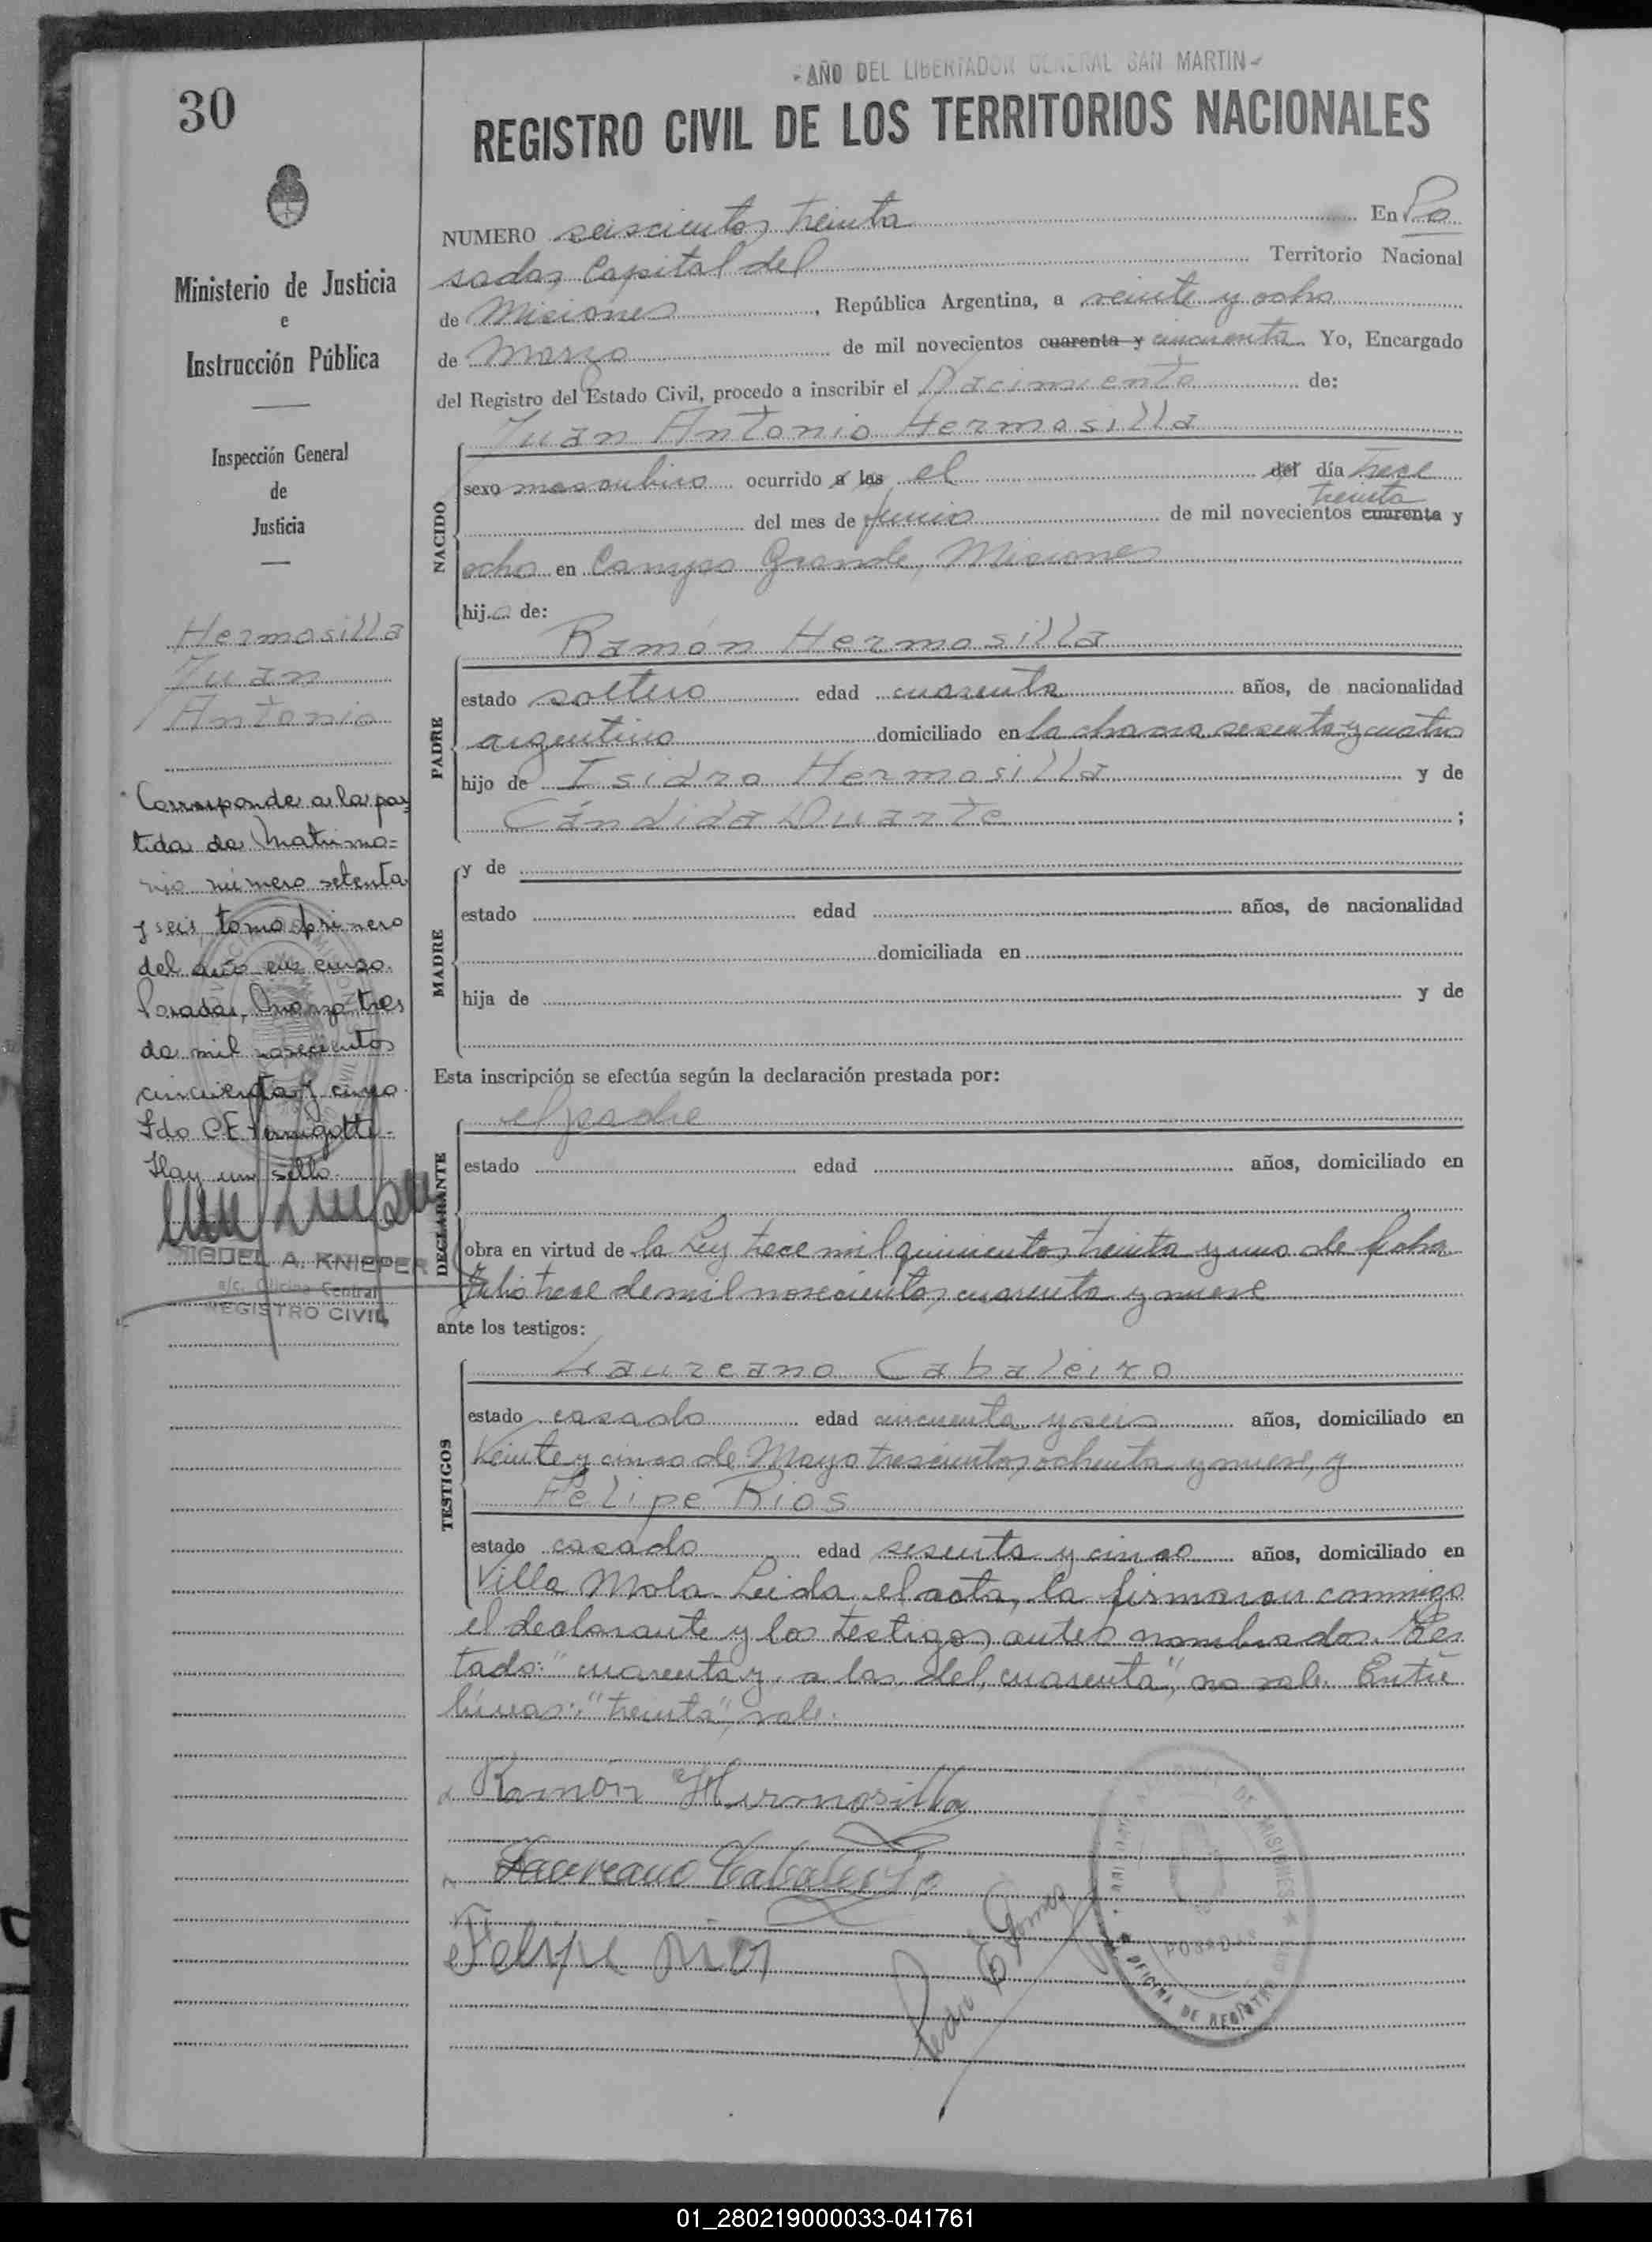 30
Ministerio de Justicia
e
Instrucción Pública
Inspección General
de
Justicia
Hermosilla
Juan
Antonio
Corresponde a la par
tida de Matrimo=
nio número setenta
y seis, tomo primero
del año en curso.
Posadas, Marzo tres
de mil novecientos
cincuenta y cinco.
Fdo C.E. Pernigotti.
Hay un sello.
MIGUEL A. KNIEPER
a/c. Oficina Central
REGISTRO CIVIL
AÑO DEL LIBERTADOR GENERAL SAN MARTIN
REGISTRO CIVIL DE LOS TERRITORIOS NACIONALES
NUMERO seiscientos treinta En Po
sadas, Capital del Territorio Nacional
de Misiones, República Argentina, a veinte y ocho
de Marzo de mil novecientos cuarenta y cincuenta. Yo, Encargado
del Registro del Estado Civil, procedo a inscribir el Nacimiento de:
Juan Antonio Hermosilla
NACIDO
sexo masculino ocurrido a las el del día trece
treinta
del mes de Junio de mil novecientos cuarenta y
ocho en Campo Grande, Misiones
hijo de:
Ramón Hermosilla
PADRE
estado soltero edad cuarenta años, de nacionalidad
argentino domiciliado en la chacra sesenta y cuatro
hijo de Isidro Hermosilla y de
Cándida Duarte;
MADRE
y de
estado edad años, de nacionalidad
domiciliada en
hija de y de
Esta inscripción se efectúa según la declaración prestada por:
el padre
DECLARANTE
estado edad años, domiciliado en
obra en virtud de la Ley trece mil quinientos treinta y uno de fecha
Julio trece de mil novecientos cuarenta y nueve
ante los testigos:
Laureano Cabaleiro
TESTIGOS
estado casado edad cincuenta y seis años, domiciliado en
Veinte y cinco de Mayo trescientos ochenta y nueve, y
Felipe Rios
estado casado edad sesenta y cinco años, domiciliado en
Villa Mola. Leida el acta, la firmaron conmigo
el declarante y los testigos antes nombrados. Tes
tado: "cuarenta y, a las, del, cuarenta", no vale. Entre
líneas: "treinta", vale.
Ramón Hermosilla
Laureano Cabaleiro
Felipe Rios
E Gomez
DE MISIONES
POSADAS
OFICINA DE REGISTRO
01_280219000033-041761